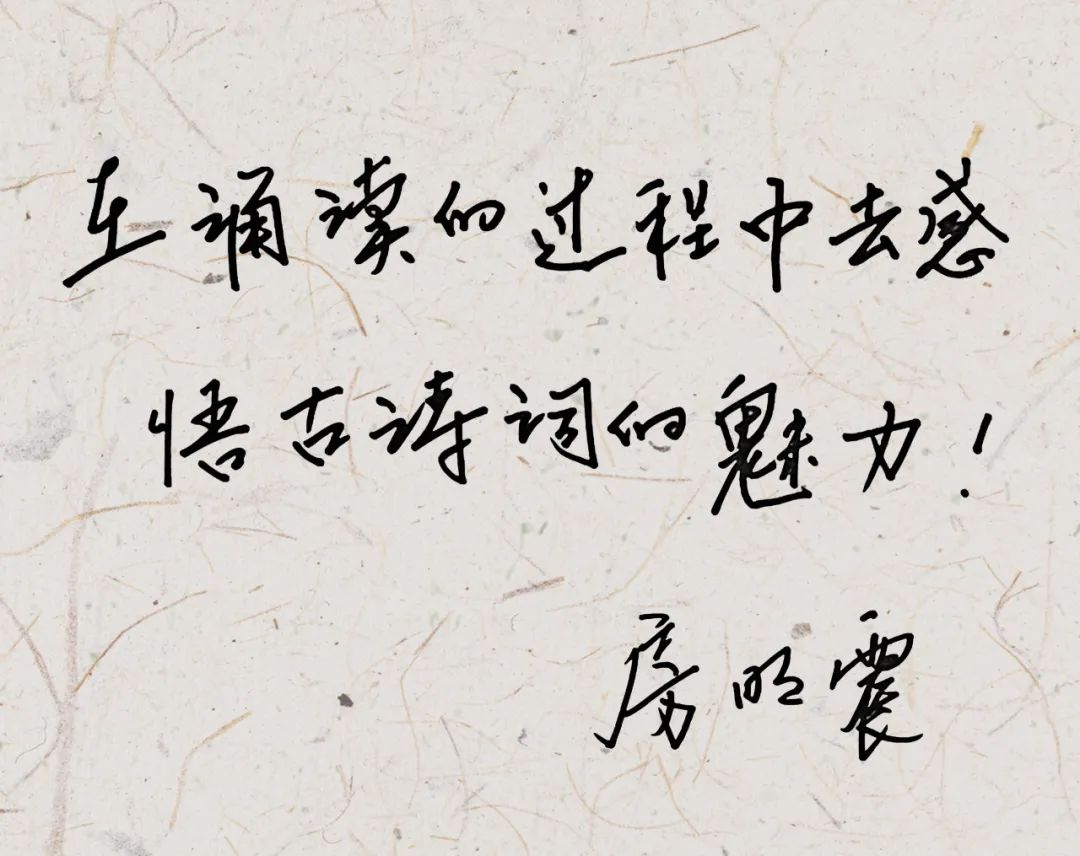 在诵读的过程中去感
悟古诗词的魅力！
房明震